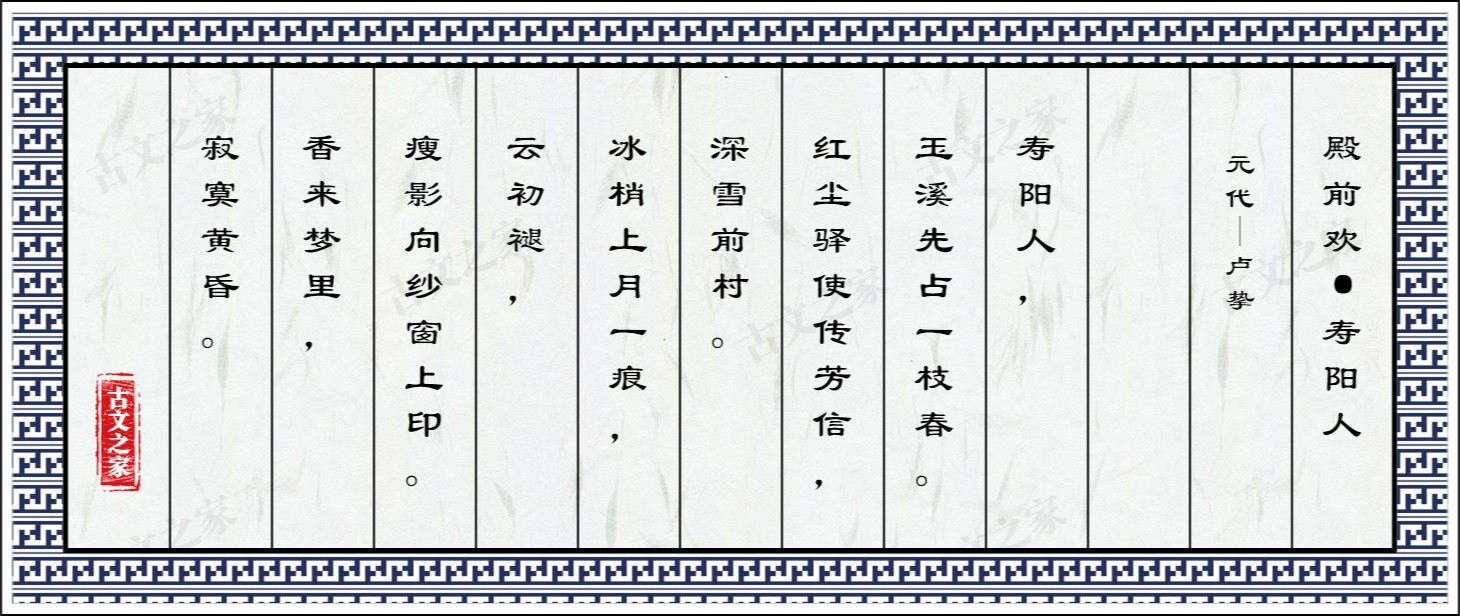 殿前欢●寿阳人
元代—卢挚
寿阳人，
玉溪先占一枝春。
红尘驿使传芳信，
深雪前村。
冰梢上月一痕，
云初褪，
瘦影向纱窗上印。
香来梦里，
寂寞黄昏。
古文之家